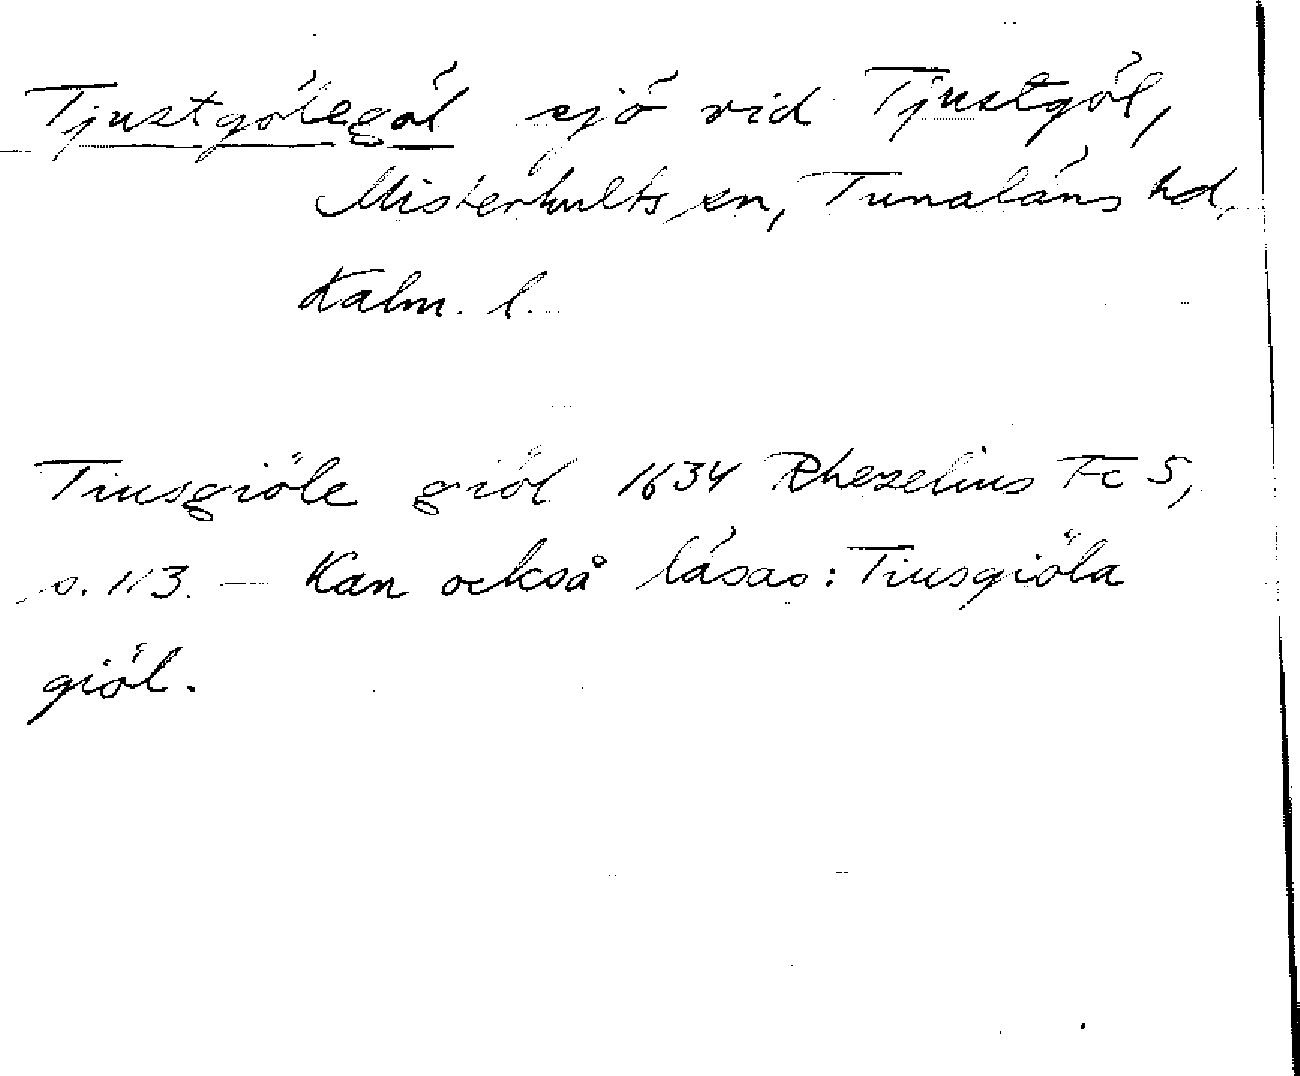 Tjustgölegöl sjö vid Tjustgöl,
Misterhults sn, Tunaläns hd,
Kalm. l.
Tiusgiöle giöl 1634 Rhezelius Fc 5,
s. 113. — Kan också läsas: Tiusgiöla
giöl.